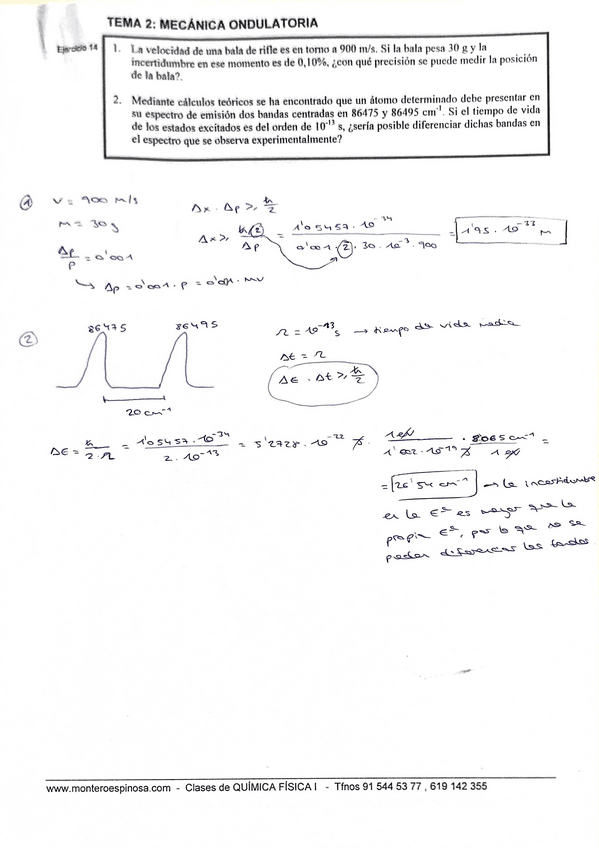 TEMA 2: MECÁNICA ONDULATORIA
Ejercicio 14
1. La velocidad de una bala de rifle es en torno a 900 m/s. Si la bala pesa 30 g y la
incertidumbre en ese momento es de 0,10%, ¿con qué precisión se puede medir la posición
de la bala?.
2. Mediante cálculos teóricos se ha encontrado que un átomo determinado debe presentar en
su espectro de emisión dos bandas centradas en 86475 y 86495 cm⁻¹. Si el tiempo de vida
de los estados excitados es del orden de 10⁻¹³ s, ¿sería posible diferenciar dichas bandas en
el espectro que se observa experimentalmente?
① V = 900 m/s
m = 30 g
Δp/p = 0'001
↳ Δp = 0'001 · p = 0'001 · mv
Δx · Δp ≥ ħ/2
Δx ≥ ħ/2 / Δp = 1'05457 · 10⁻³⁴ / 0'001 · 2 · 30 · 10⁻³ · 900 = 1'95 · 10⁻³³ m
② 86475 86495
20 cm⁻¹
τ = 10⁻¹³ s → tiempo de vida media
Δt = τ
ΔE · Δt ≥ ħ/2
ΔE = ħ / 2 · τ = 1'05457 · 10⁻³⁴ / 2 · 10⁻¹³ = 5'2728 · 10⁻²² J · 1 eV / 1'602 · 10⁻¹⁹ J · 8065 cm⁻¹ / 1 eV =
= 26'54 cm⁻¹ → la incertidumbre
en la Eª es mayor que la
propia Eª, por lo que no se
pueden diferenciar las bandas
www.monteroespinosa.com - Clases de QUÍMICA FÍSICA I - Tfnos 91 544 53 77 , 619 142 355